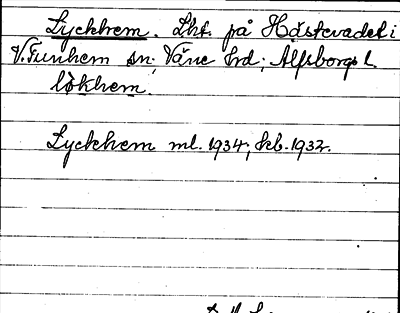 Lyckhem. Lht. på Hästevadet i
V. Tunhem sn; Väne hrd; Älfsborgs l.
lökhem.
Lyckhem ml. 1934; kb. 1932.